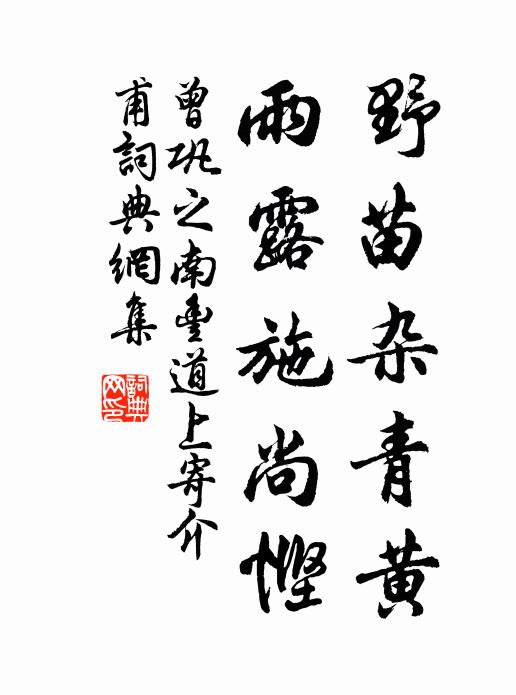 野苗杂青黄
雨露施尚悭
曾巩之南豊道上寄介
甫詞典網集
詞典
网印